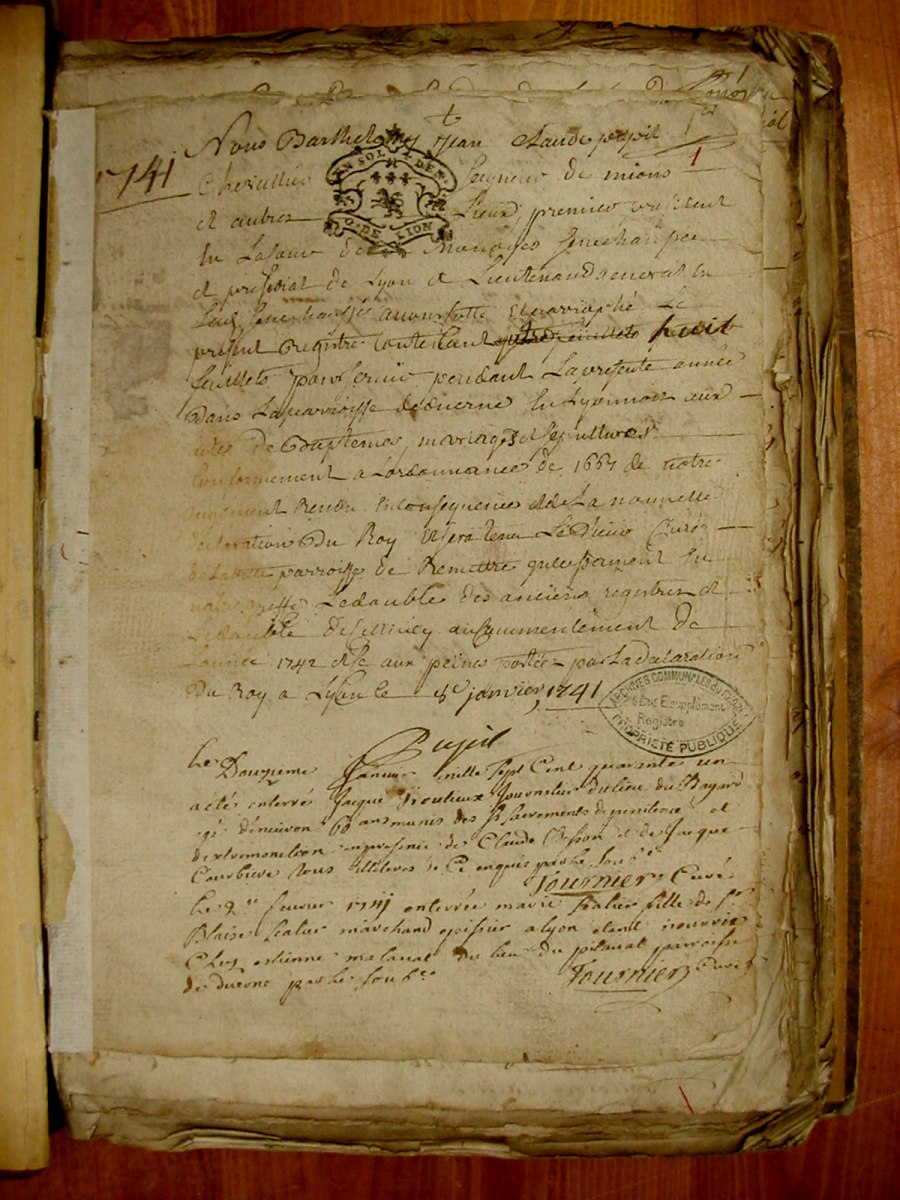 1
1er
1741
Nous Barthelemy Jean Claude pupil
1
Chevallier Seigneur de mions
UN SOL 4 DEN
G. DE LION
et autres Lieux, premier president
en La Cour des Monoyes Senechaussee
et presidial de Lyon et Lieutenand general en
Lad. Senechaussée avons cotté et paraphé Le
present Registre Contenant huit
feuillets pour servir pendant La presente année
dans La parroisse deduerne en Lyonnois aux
actes de Baptemes, mariages et Sepultures
Conformement a Lordonnance de 1667 de notre
Rendu En consequence et de La nouvelle
declaration du Roy et sera tenu Le Sieur Curé
de Laditte parroisse de Remettre au
greffe Le double des anciens registres et
Le double de Celuicy au Commencement de
L'année 1742 et ce aux peines portées par La declaration
du Roy a Lyon Le 8e janvier, 1741
ARCHIVES COMMUNALES DU RHONE
Série E supplément
Registre
PROPRIÉTÉ PUBLIQUE
Pupil
Le Douzieme Janvier mille Sept Cent quarante un
a été enterré Jacque journalier du lieu du Bayard
agé d'environ 60 ans munis des St sacrements de penitence et
dextremonction en presence de Claude et de Jacque
Courbiere tous illiteres de Ce enquis par le Soub.né
Tournier Curé
le fevrier 1741 enterrée marie fille de Sr
Blaise marchand epissier a lyon etant nourrie
Chez estienne du lieu du parroisse
de duerne par le Soub.né
Tournier Curé